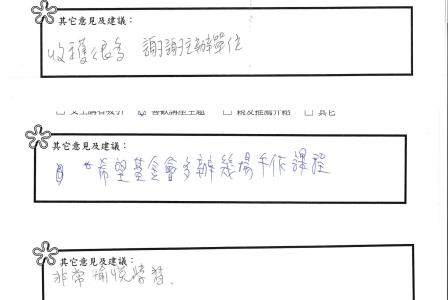 其它意見及建議：
收穫很多 謝謝主辦單位
□ 受主講者吸引 ☑ 喜歡講座主題 □ 親友推薦介紹 □ 其它
其它意見及建議：
希望基金會多辦幾場手作課程
其它意見及建議：
非常愉悅學習.